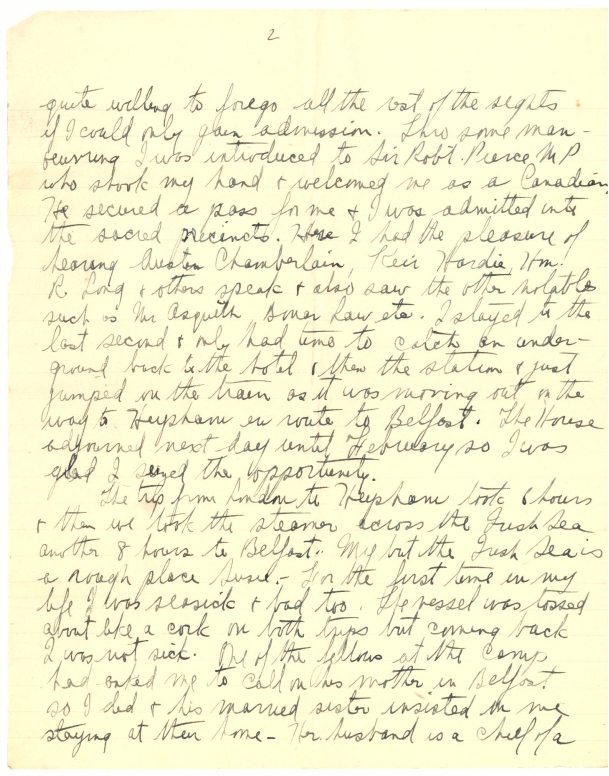 2
quite willing to forego all the rest of the sights
if I could only gain admission. Thro some man-
oeuvring I was introduced to Sir Robt. Pierce, M P
who shook my hand & welcomed me as a Canadian,
He secured a pass for me & I was admitted into
the sacred precincts. Here I had the pleasure of
hearing Austen Chamberlain, Keir Hardie, Wm.
R. Long & others speak & also saw the other notables
such as Mr Asquith, Bonar Law etc. I stayed to the
last second & only had time to catch an under-
ground back to the hotel & then the station & just
jumped on the train as it was moving out on the
way to Heysham en route to Belfast. The House
adjourned next day until February so I was
glad I seized the opportunity.
The trip from London to Heysham took 6 hours
& then we took the steamer across the Irish Sea
another 8 hours to Belfast. My but the Irish Sea is
a rough place Susie,- For the first time in my
life I was seasick & bad too. The vessel was tossed
about like a cork on both trips but coming back
I was not sick. One of the fellows at the camp
had asked me to call on his mother in Belfast
so I did & his married sister insisted on me
staying at their home - Her husband is a chief of a